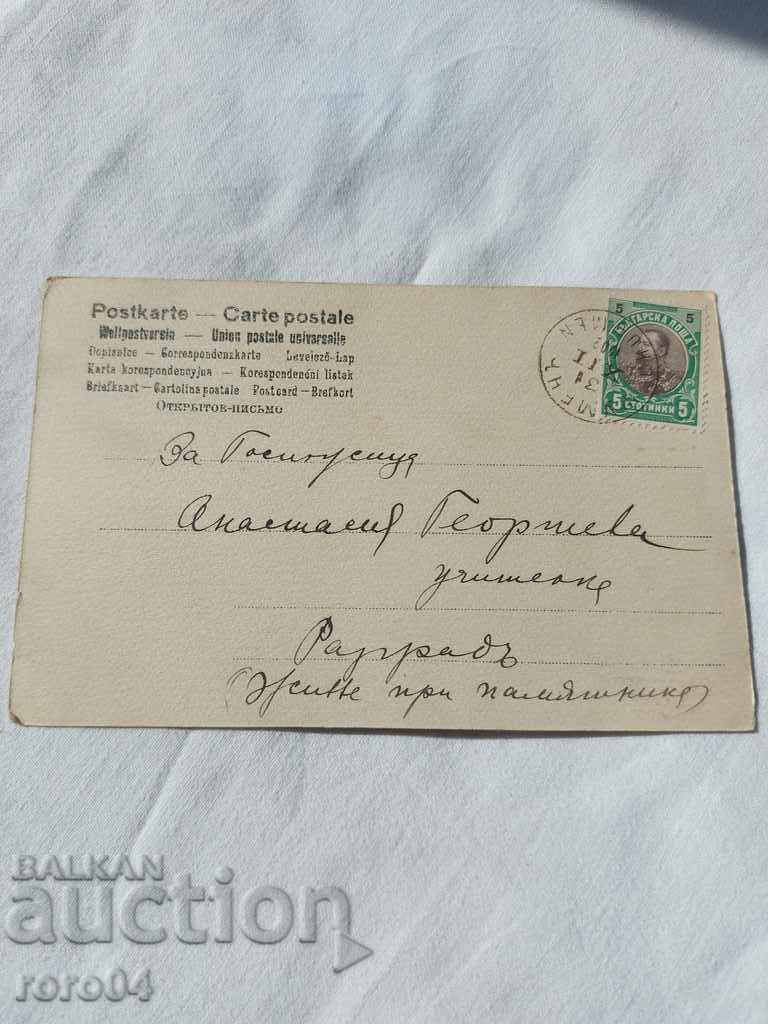 Postkarte — Carte postale
Weltpostverein — Union postale universelle
Dopisnice — Correspondenzkarte Levelező-Lap
Karta korespondencyjna — Korespondenční listek
Briefkaart — Cartolina postale Postcard — Brefkort
Открытое-письмо
5 5
БЪЛГАРСКА ПОЩА
5 СТОТИНКИ 5
31
За Госпожица
Анастасия Георгиева
учителка
Разградъ
(Живѣе при паметника)
BALKAN
auction
roro04